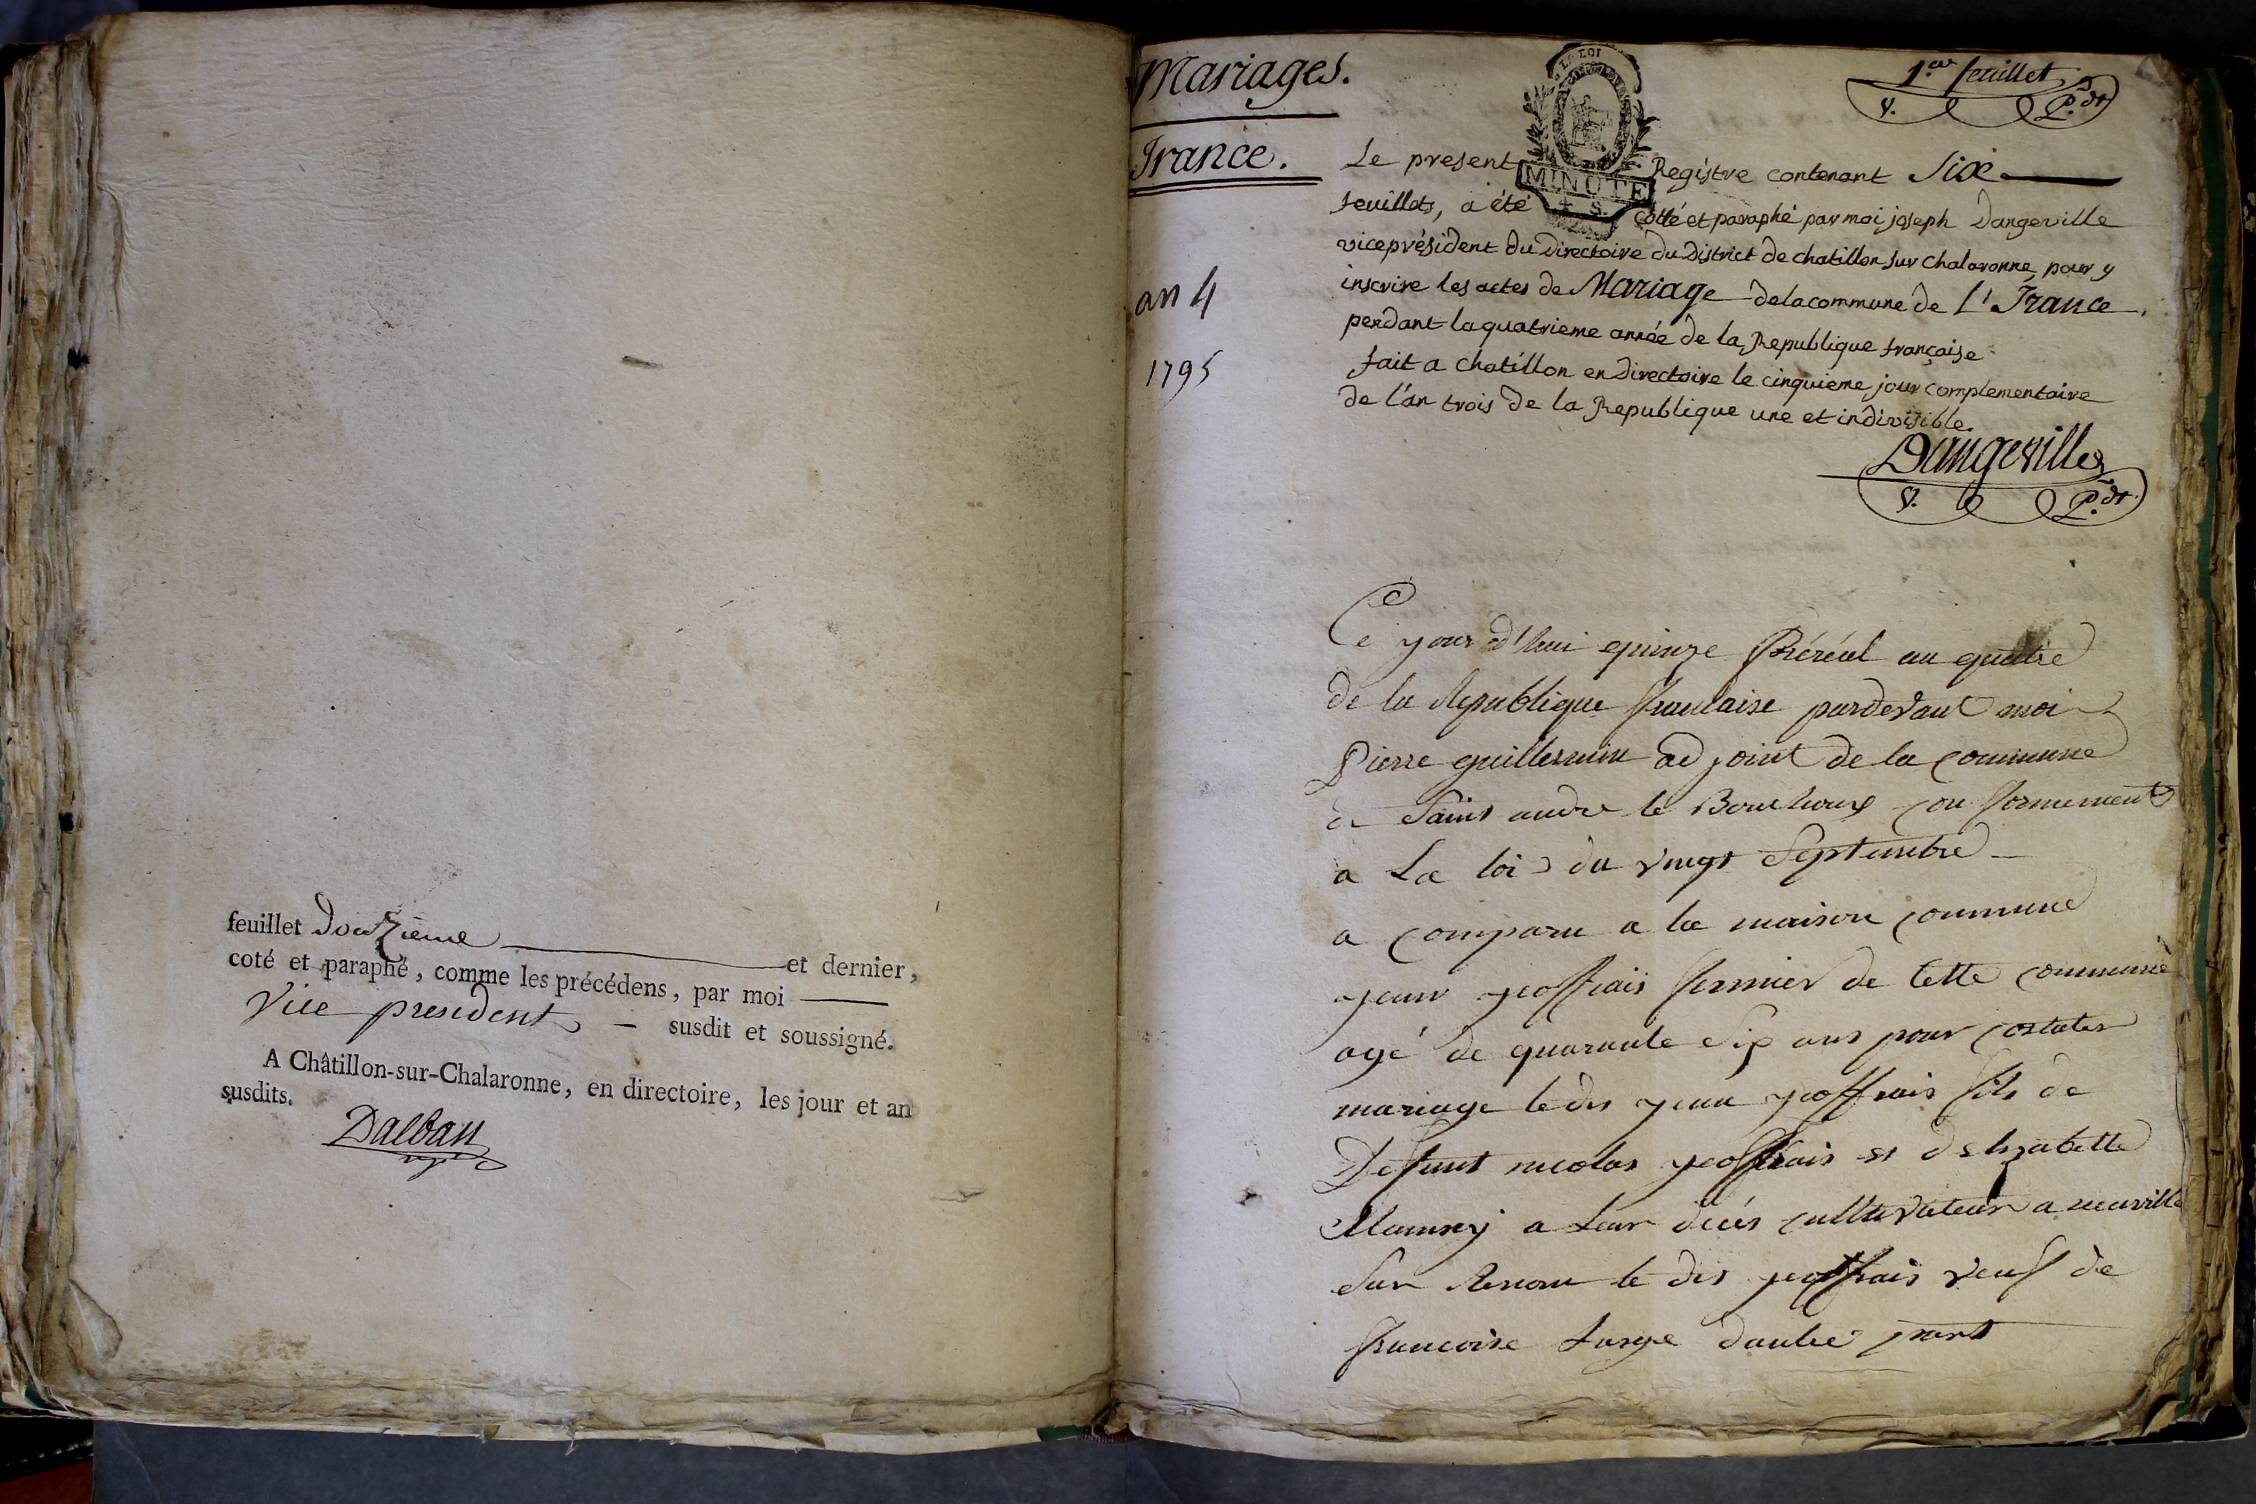 feuillet Douzième et dernier,
coté et paraphé, comme les précédens, par moi
Vice president susdit et soussigné.
A Châtillon-sur-Chalaronne, en directoire, les jour et an
susdits.
Dalban
Mariages.
france.
an 4
1795
1.er feuillet
V. P.dt
LA LOI
MINUTE
Le present Registre contenant Six
feuillets, a été Cotté et paraphé par moi joseph Dangeville
viceprésident du Directoire du District de chatillon sur chalaronne, pour y
inscrire les actes de Mariage de la commune de L' france.
pendant la quatrieme année de la Republique française
fait a chatillon en directoire le cinquieme jour complementaire
de l'an trois de la Republique une et indivisible.
Dangeville
V. P.dt.
Ce yourd'hui quinze au quatre
de la Republique francaise pardevant moi
Pierre guillermin adjoint de la commune
de Saint andre le Bouchoux conformement
a La loi du vingt Septembre
a comparu a la maison commune
yean yeoffrais fermier de cette commune
agé de quarante Six ans pour costater
mariage ledit yean yeoffrais fils de
Defunt nicolas yeoffrais et
a leur décés cultivateur a neuville
Sur Renom le dit yeoffrais veuf de
francoise d'autre part